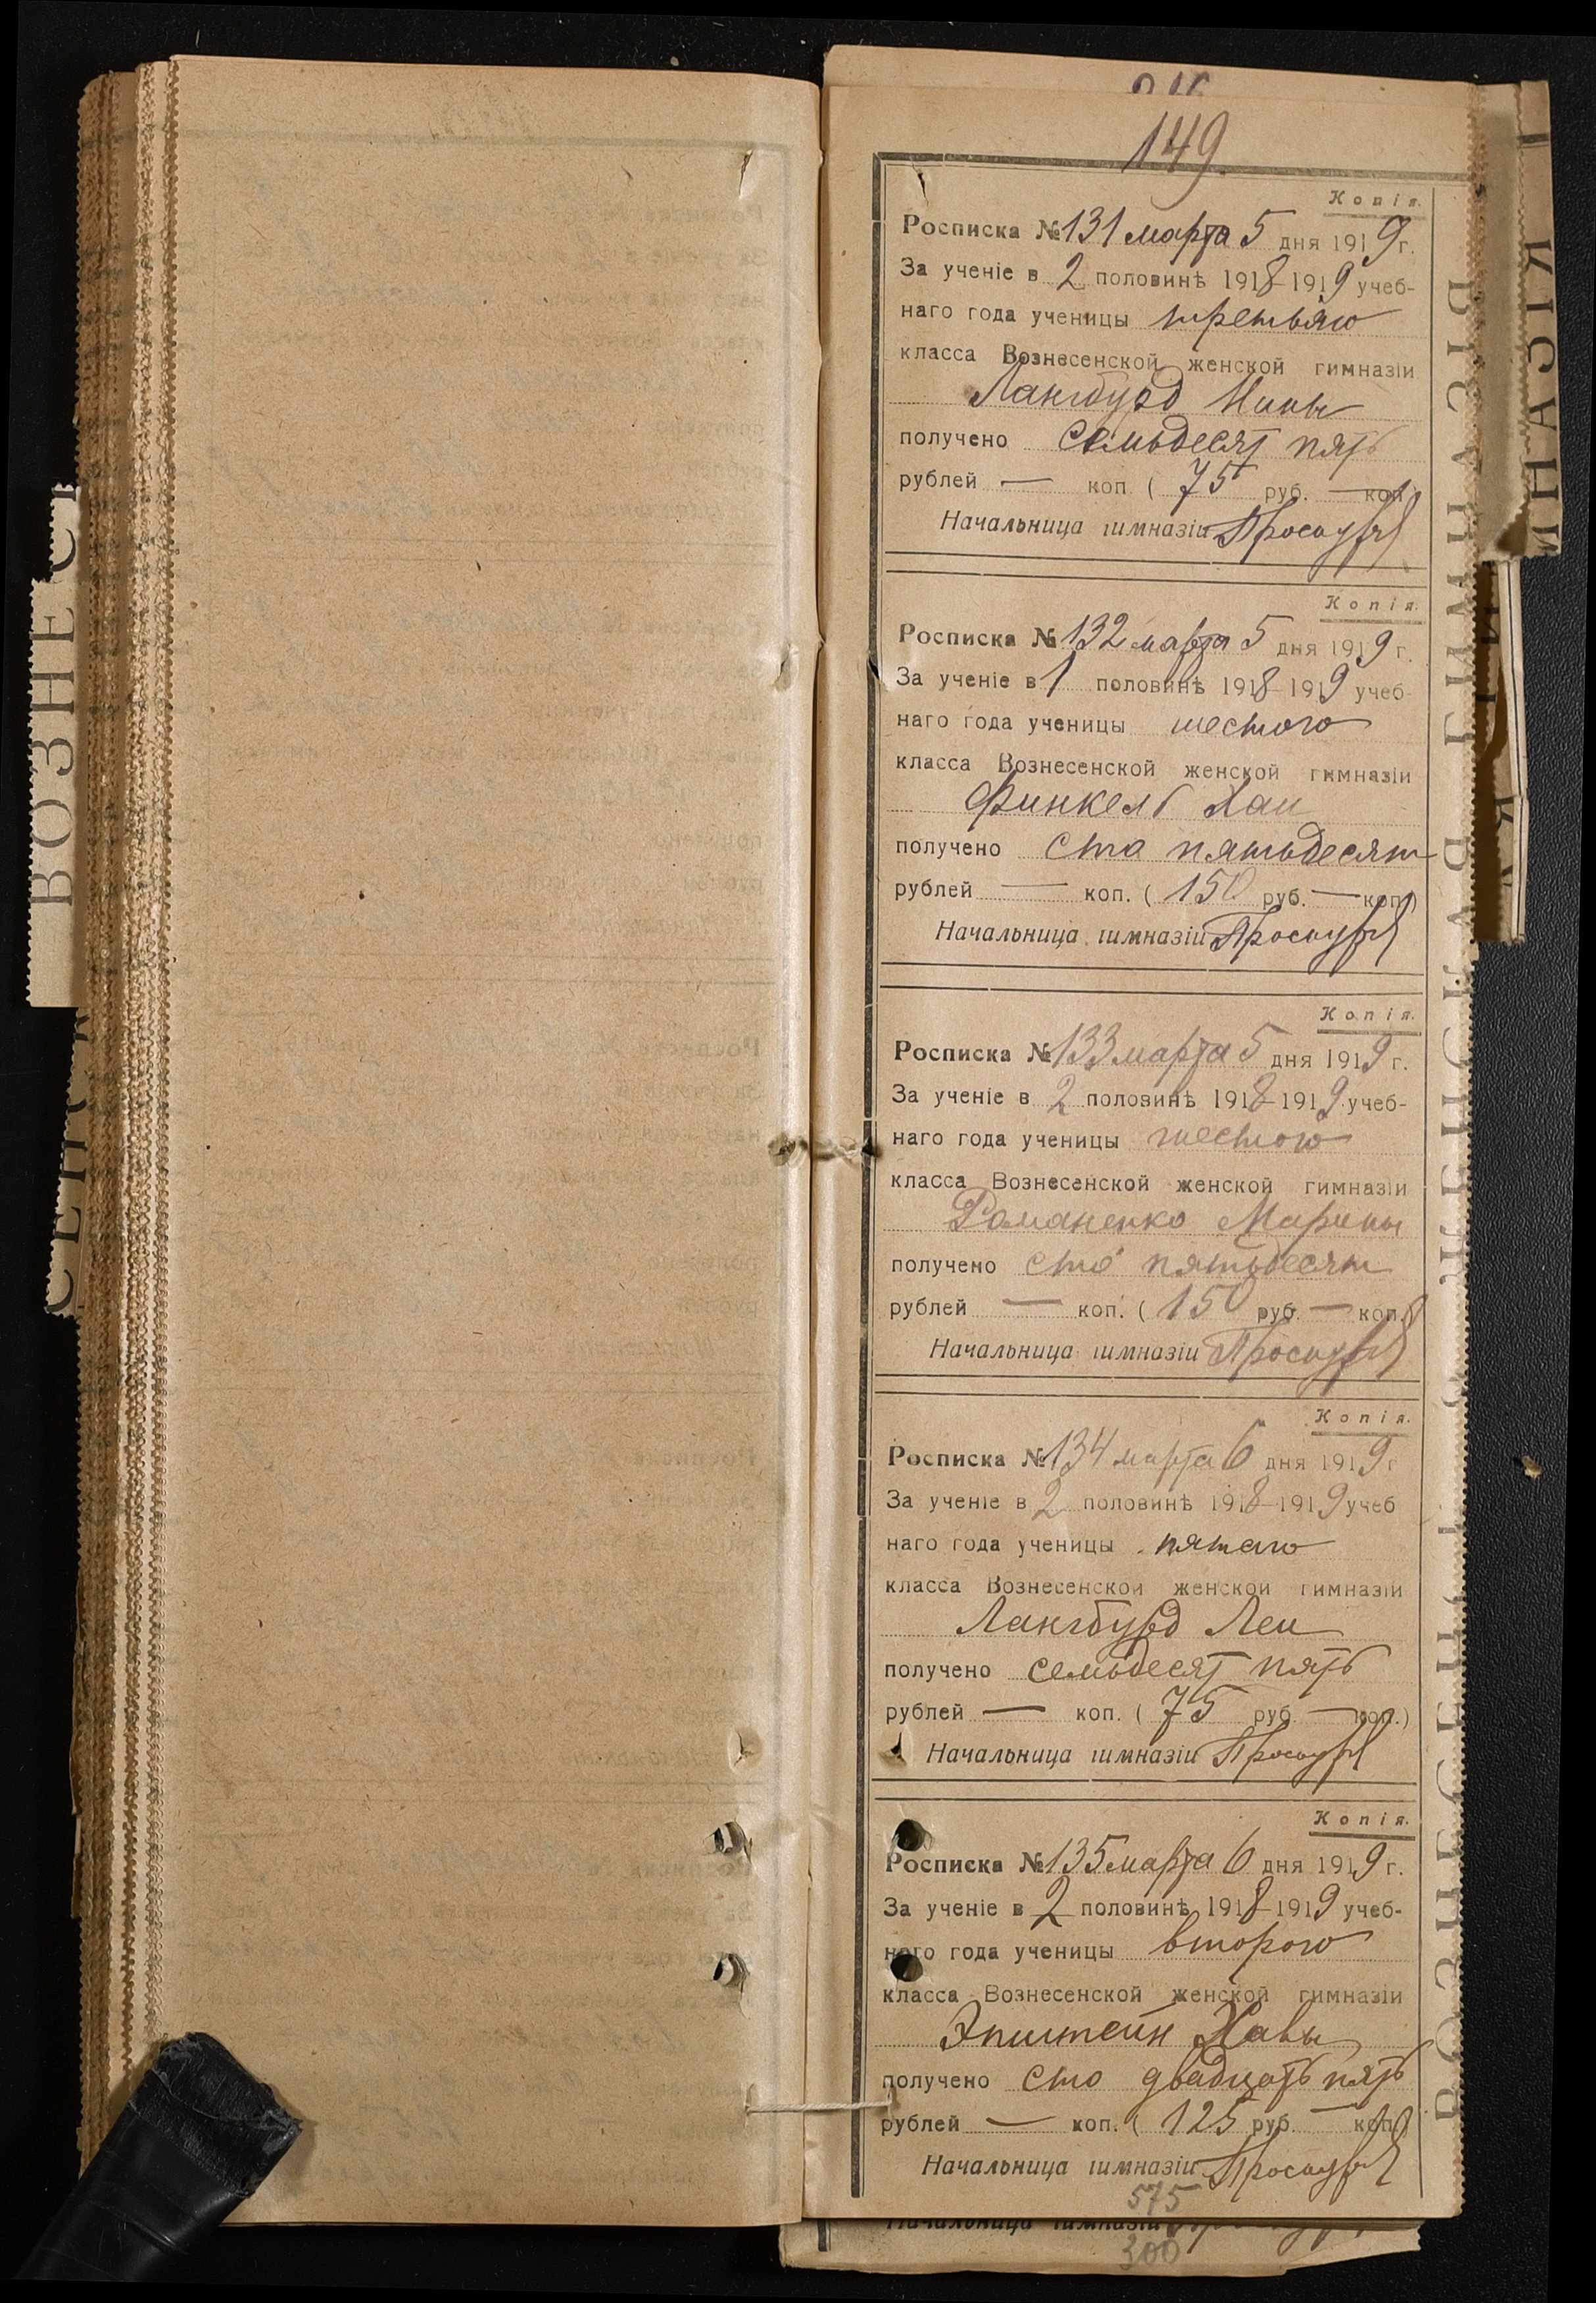 149.
Копія.
Росписка № 131 марта 5 дня 1919 г.
За ученіе в 2 половинѣ 1918-1919 учеб-
наго года ученицы третьяго
класса Вознесенской женской гимназіи
Лангбурд Нины
получено семьдесят пять
рублей — коп. ( 75 руб. — коп.)
Начальница гимназіи
Копія.
Росписка № 132 марта 5 дня 1919 г.
За ученіе в 1 половинѣ 1918-1919 учеб-
наго года ученицы шестого
класса Вознесенской женской гимназіи
Финкель Хаи
получено сто пятьдесят
рублей — коп. ( 150 руб. — коп.)
Начальница гимназіи
Копія.
Росписка № 133 марта 5 дня 1919 г.
За ученіе в 2 половинѣ 1918-1919 учеб-
наго года ученицы шестого
класса Вознесенской женской гимназіи
Романенко Марины
получено сто пятьдесят
рублей — коп. ( 150 руб. — коп.)
Начальница гимназіи
Копія.
Росписка № 134 марта 6 дня 1919 г
За ученіе в 2 половинѣ 1918-1919 учеб
наго года ученицы пятаго
класса Вознесенской женской гимназіи
Лангбурд Леи
получено семьдесят пять
рублей — коп. ( 75 руб. — коп.)
Начальница гимназіи
Копія.
Росписка № 135 марта 6 дня 1919 г.
За ученіе в 2 половинѣ 1918-1919 учеб-
наго года ученицы второго
класса Вознесенской женской гимназіи
Эпштейн Хавы
получено сто двадцать пять
рублей — коп. ( 125 руб. — коп.)
Начальница гимназіи
575
Начальница гимназіи
300
ВОЗНЕС